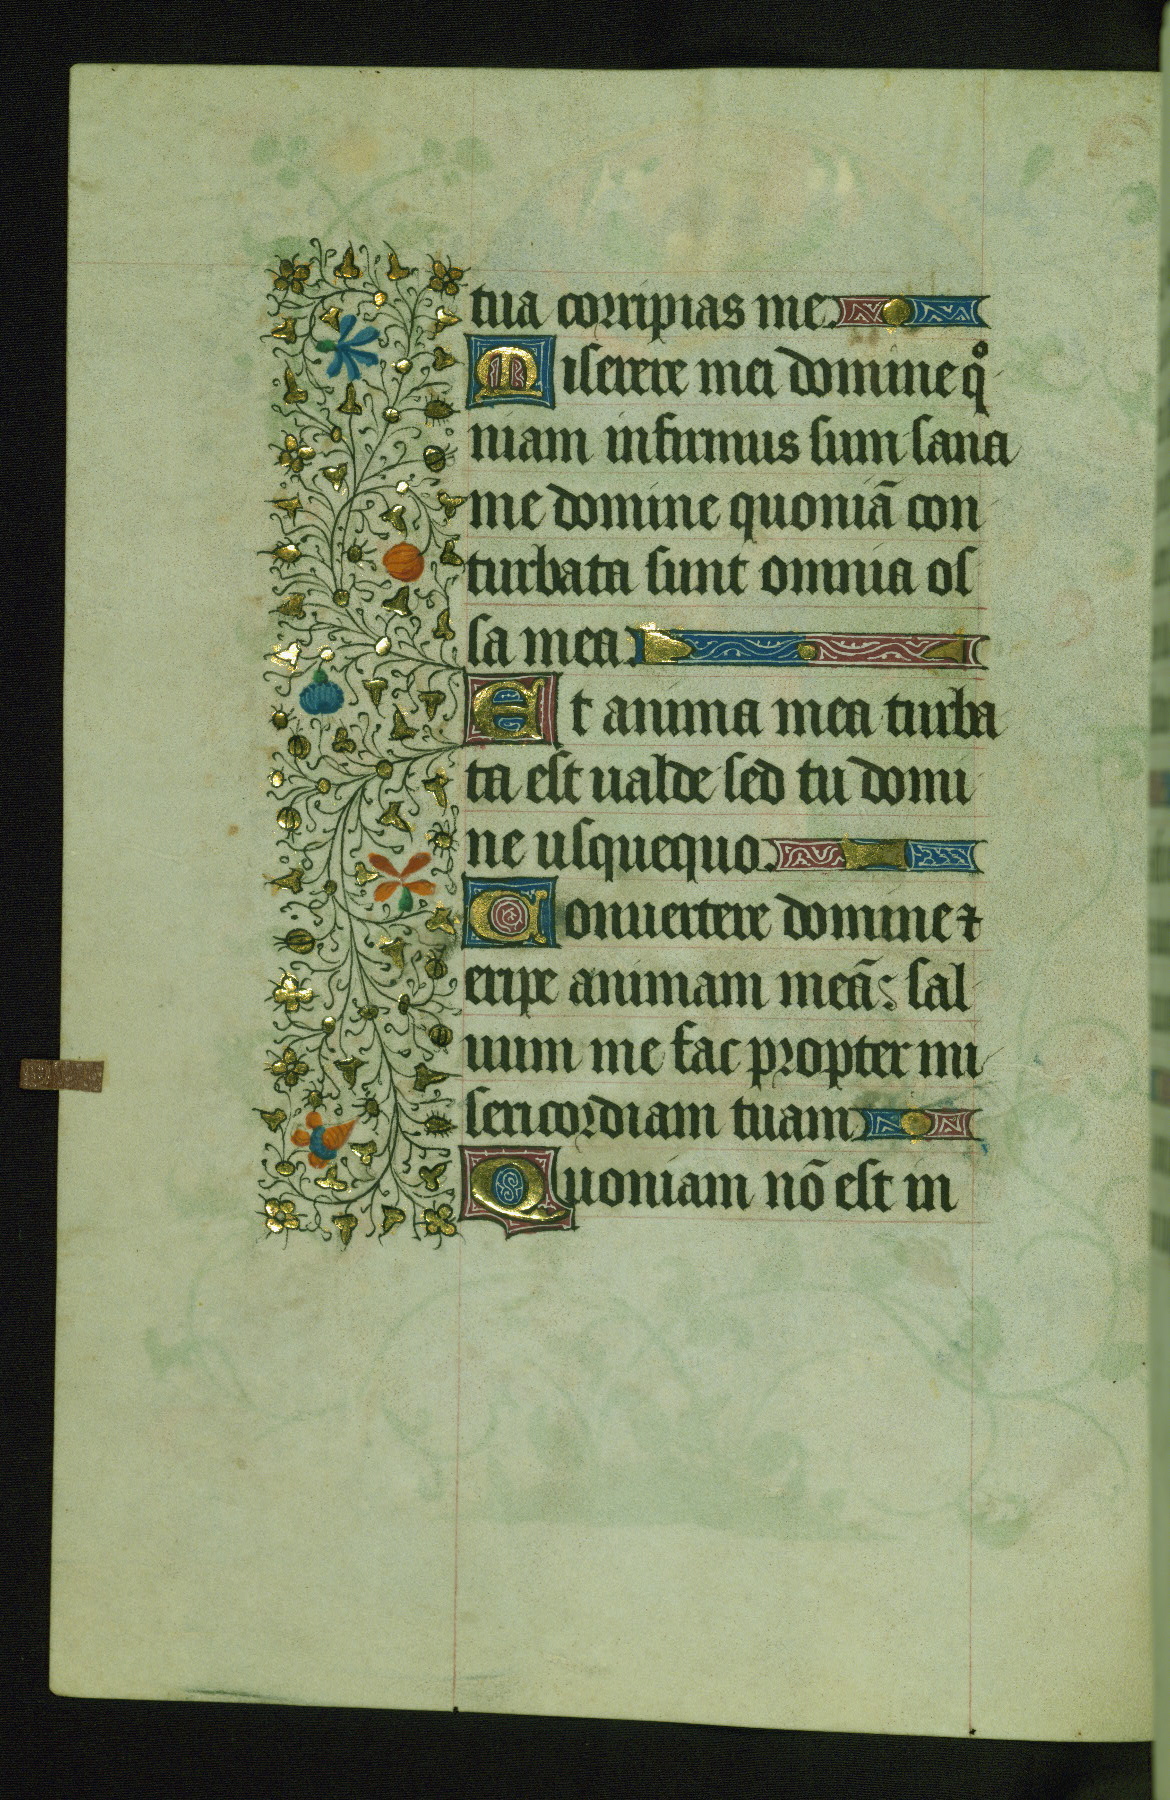 tua corripias me.
Miserere mei domine qo
niam infirmus sum sana
me domine quoniã con
turbata sunt omnia os
sa mea.
Et anima mea turba
ta est ualde sed tu domi
ne usquequo.
Conuertere domine ⁊
eripe animam meã: sal
uum me fac propter mi
sericordiam tuam
Quoniam nõ est in